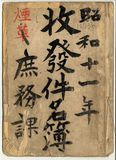 昭和十一年
收發件名簿
煙草
庶務課